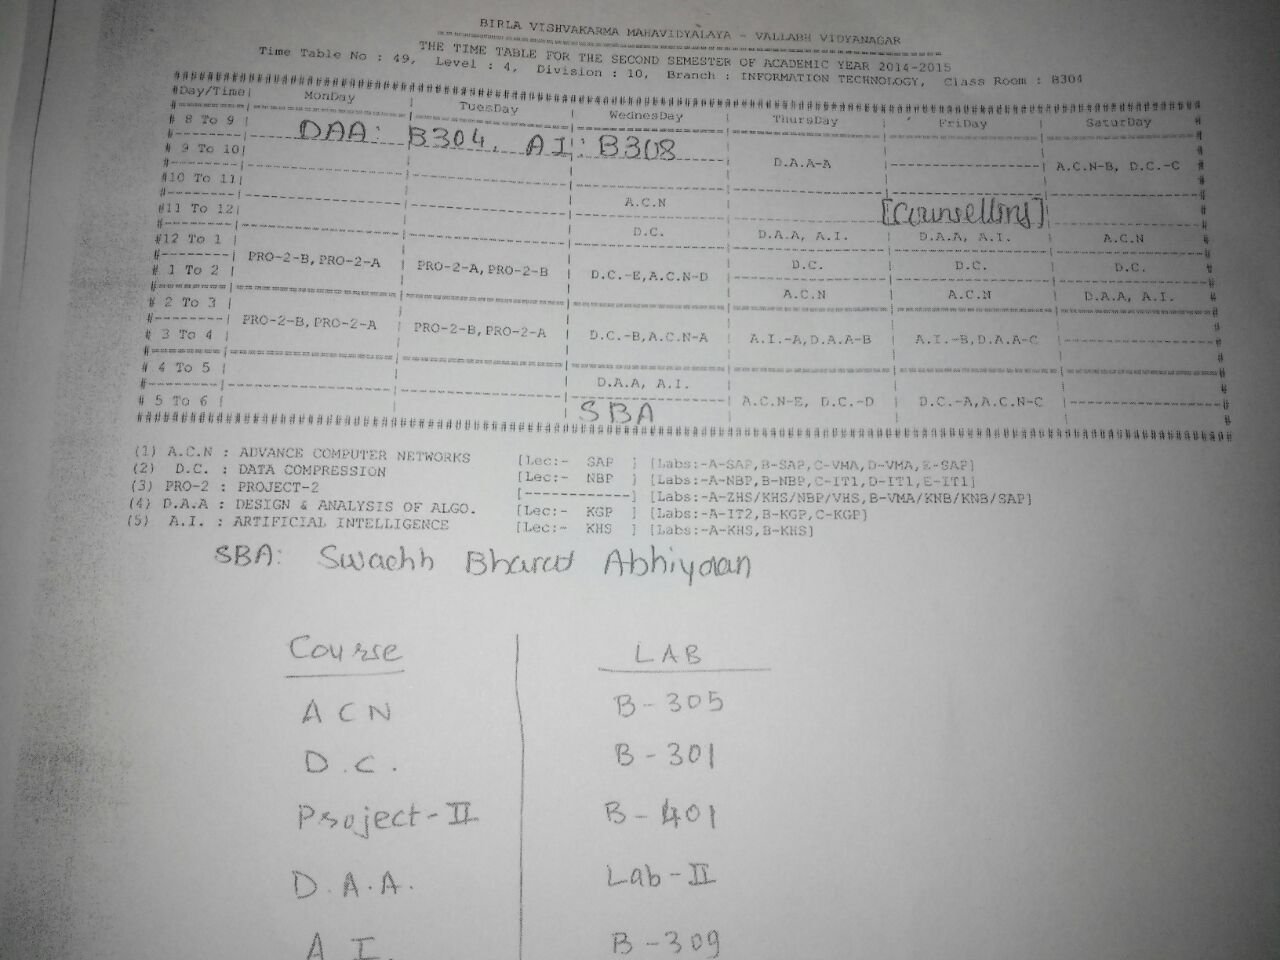 BIRLA VISHVAKARMA MAHAVIDYALAYA - VALLABH VIDYANAGAR
THE TIME TABLE FOR THE SECOND SEMESTER OF ACADEMIC YEAR 2014-2015
Time Table No : 49, Level : 4, Division : 10, Branch : INFORMATION TECHNOLOGY, Class Room : B304
#Day/Time| MonDay | TuesDay | WednesDay | ThursDay | FriDay | SaturDay #
# 8 To 9 |
DAA: B304. AI: B308
# 9 To 10| D.A.A-A | A.C.N-B, D.C.-C
#10 To 11| A.C.N
[Counselling]
#11 To 12| D.C. | D.A.A, A.I. | D.A.A, A.I. | A.C.N
#12 To 1 | D.C. | D.C. | D.C.
PRO-2-B,PRO-2-A | PRO-2-A,PRO-2-B | D.C.-E,A.C.N-D
# 1 To 2 | A.C.N | A.C.N | D.A.A, A.I.
# 2 To 3 |
PRO-2-B,PRO-2-A | PRO-2-B,PRO-2-A | D.C.-B,A.C.N-A | A.I.-A,D.A.A-B | A.I.-B,D.A.A-C
# 3 To 4 |
# 4 To 5 | D.A.A, A.I.
# 5 To 6 | SBA | A.C.N-E, D.C.-D | D.C.-A,A.C.N-C
(1) A.C.N : ADVANCE COMPUTER NETWORKS [Lec:- SAP ] [Labs:-A-SAP,B-SAP,C-VMA,D-VMA,E-SAP]
(2) D.C. : DATA COMPRESSION [Lec:- NBP ] [Labs:-A-NBP,B-NBP,C-IT1,D-IT1,E-IT1]
(3) PRO-2 : PROJECT-2 [------------] [Labs:-A-ZHS/KHS/NBP/VHS,B-VMA/KNB/KNB/SAP]
(4) D.A.A : DESIGN & ANALYSIS OF ALGO. [Lec:- KGP ] [Labs:-A-IT2,B-KGP,C-KGP]
(5) A.I. : ARTIFICIAL INTELLIGENCE [Lec:- KHS ] [Labs:-A-KHS,B-KHS]
SBA: Swachh Bharat Abhiyaan
Course LAB
ACN B-305
D.C. B-301
Project-II B-401
D.A.A. Lab-II
A I. B-309